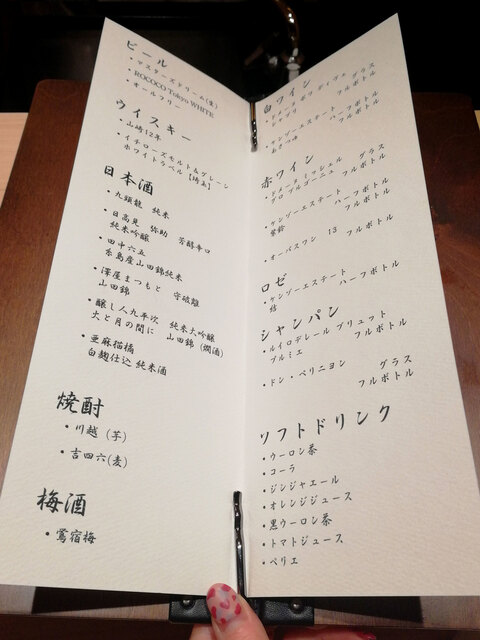 ビール
・マスターズドリーム(生)
・ROCOCO Tokyo WHITE
・オールフリー
ウイスキー
・山崎12年
・イチローズモルト&グレーン
ホワイトラベル【埼玉】
日本酒
・九頭龍 純米
・日高見 弥助 芳醇辛口
純米吟醸
・田中六五
糸島産山田錦純米
・澤屋まつもと 守破離
山田錦
・醸し人九平次 純米大吟醸
火と月の間に 山田錦(燗酒)
・亜麻猫橘
白麹仕込 純米酒
焼酎
・川越(芋)
・吉四六(麦)
梅酒
・鶯宿梅
白ワイン
シャブリ フルボトル
・ケンゾーエステート ハーフボトル
あさつゆ フルボトル
赤ワイン
・ドメーヌ ミッシェル グラス
グロ ブルゴーニュ フルボトル
・ケンゾーエステート ハーフボトル
紫鈴 フルボトル
・オーパスワン 13 フルボトル
ロゼ
・ケンゾーエステート
結 ハーフボトル
シャンパン
・ルイロデレール ブリュット
プルミエ フルボトル
・ドン・ペリニヨン グラス
フルボトル
ソフトドリンク
・ウーロン茶
・コーラ
・ジンジャエール
・オレンジジュース
・黒ウーロン茶
・トマトジュース
・ペリエ